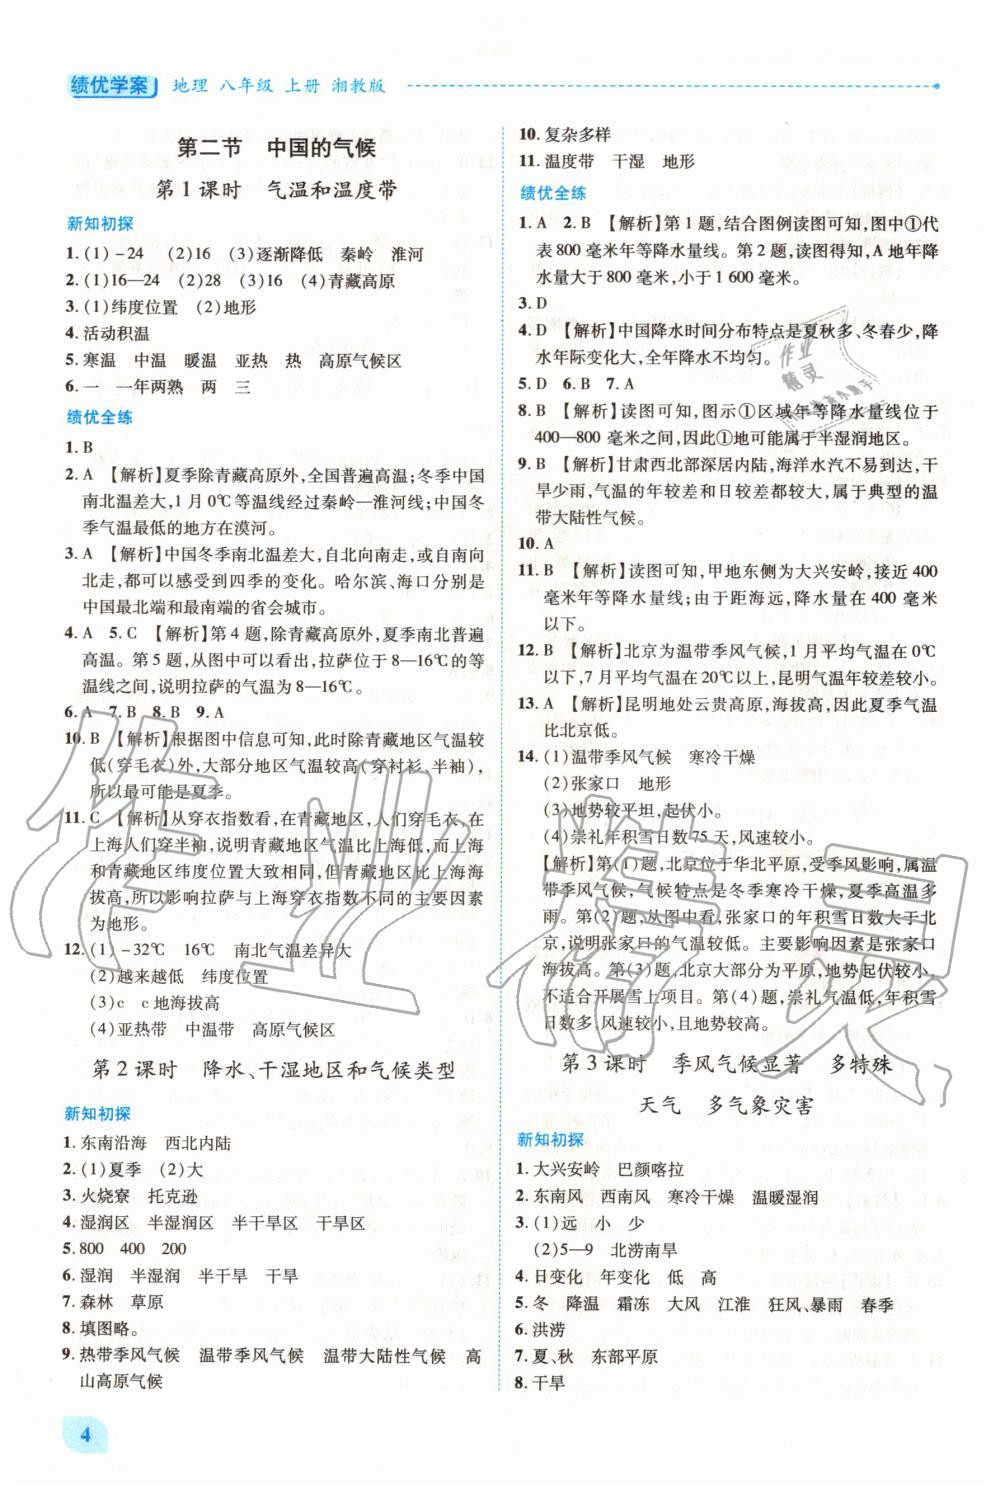 绩优学案 地理 八年级 上册 湘教版
第二节 中国的气候
第1课时 气温和温度带
新知初探
1.(1)-24 (2)16 (3)逐渐降低 秦岭 淮河
2.(1)16—24 (2)28 (3)16 (4)青藏高原
3.(1)纬度位置 (2)地形
4.活动积温
5.寒温 中温 暖温 亚热 热 高原气候区
6.一 一年两熟 两 三
绩优全练
1.B
2.A 【解析】夏季除青藏高原外,全国普遍高温;冬季中国
南北温差大,1月0℃等温线经过秦岭—淮河线;中国冬
季气温最低的地方在漠河。
3.A 【解析】中国冬季南北温差大,自北向南走,或自南向
北走,都可以感受到四季的变化。哈尔滨、海口分别是
中国最北端和最南端的省会城市。
4.A 5.C 【解析】第4题,除青藏高原外,夏季南北普遍
高温。第5题,从图中可以看出,拉萨位于8—16℃的等
温线之间,说明拉萨的气温为8—16℃。
6.A 7.B 8.B 9.A
10.B 【解析】根据图中信息可知,此时除青藏地区气温较
低(穿毛衣)外,大部分地区气温较高(穿衬衫、半袖),
所以最可能是夏季。
11.C 【解析】从穿衣指数看,在青藏地区,人们穿毛衣,在
上海人们穿半袖,说明青藏地区气温比上海低,而上海
和青藏地区纬度位置大致相同,但青藏地区比上海海
拔高,所以影响拉萨与上海穿衣指数不同的主要因素
为地形。
12.(1)-32℃ 16℃ 南北气温差异大
(2)越来越低 纬度位置
(3)c c地海拔高
(4)亚热带 中温带 高原气候区
第2课时 降水、干湿地区和气候类型
新知初探
1.东南沿海 西北内陆
2.(1)夏季 (2)大
3.火烧寮 托克逊
4.湿润区 半湿润区 半干旱区 干旱区
5.800 400 200
6.湿润 半湿润 半干旱 干旱
7.森林 草原
8.填图略。
9.热带季风气候 温带季风气候 温带大陆性气候 高
山高原气候
4
10.复杂多样
11.温度带 干湿 地形
绩优全练
1.A 2.B 【解析】第1题,结合图例读图可知,图中①代
表800毫米年等降水量线。第2题,读图得知,A地年降
水量大于800毫米,小于1 600毫米。
3.D
4.D 【解析】中国降水时间分布特点是夏秋多、冬春少,降
水年际变化大,全年降水不均匀。
5.D 6.B 7.A
8.B 【解析】读图可知,图示①区域年等降水量线位于
400—800毫米之间,因此①地可能属于半湿润地区。
9.B 【解析】甘肃西北部深居内陆,海洋水汽不易到达,干
旱少雨,气温的年较差和日较差都较大,属于典型的温
带大陆性气候。
10.A
11.B 【解析】读图可知,甲地东侧为大兴安岭,接近400
毫米年等降水量线;由于距海远,降水量在400毫米
以下。
12.B 【解析】北京为温带季风气候,1月平均气温在0℃
以下,7月平均气温在20℃以上,昆明气温年较差较小。
13.A 【解析】昆明地处云贵高原,海拔高,因此夏季气温
比北京低。
14.(1)温带季风气候 寒冷干燥
(2)张家口 地形
(3)地势较平坦,起伏小。
(4)崇礼年积雪日数75天,风速较小。
【解析】第(1)题,北京位于华北平原,受季风影响,属温
带季风气候,气候特点是冬季寒冷干燥,夏季高温多
雨。第(2)题,从图中看,张家口的年积雪日数大于北
京,说明张家口的气温较低。主要影响因素是张家口
海拔高。第(3)题,北京大部分为平原,地势起伏较小,
不适合开展雪上项目。第(4)题,崇礼气温低,年积雪
日数多,风速较小,且地势较高。
第3课时 季风气候显著 多特殊
天气 多气象灾害
新知初探
1.大兴安岭 巴颜喀拉
2.东南风 西南风 寒冷干燥 温暖湿润
3.(1)远 小 少
(2)5—9 北涝南旱
4.日变化 年变化 低 高
5.冬 降温 霜冻 大风 江淮 狂风、暴雨 春季
6.洪涝
7.夏、秋 东部平原
8.干旱
作业精灵
作业
精灵